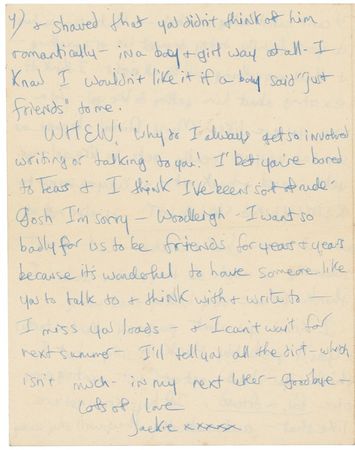 4) + showed that you didn't think of him
romantically - in a boy + girl way at all - I
Know I wouldn't like it if a boy said "just
friends" to me.
WHEW! Why do I always get so involved
writing or talking to you. I'll bet you're bored
to Tears + I think I've been sort of rude -
Gosh I'm sorry - Woodleigh - I want so
badly for us to be friends for years + years
because its wonderful to have someone like
you to talk to + think with + write to -
I miss you loads - + I can't wait for
next summer - I'll tell you all the dirt - which
isn't much - in my next letter - Goodbye -
Lots of love
Jackie xxxxx